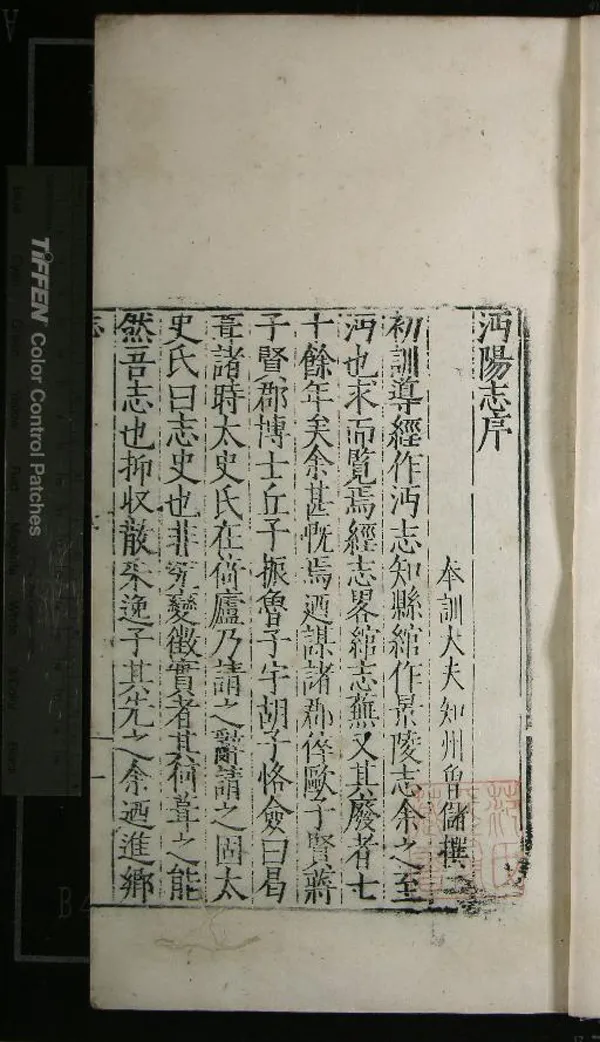 沔陽志序
奉訓大夫知州魯儲撰
初訓導經作沔志知縣綰作景陵志余之至
沔也求而覧焉經志畧綰志蕪又其廢者七
十餘年矣余甚慨焉廼謀諸郡倅歐子賢蔣
子賢郡博士丘子振魯子宇胡子恪僉曰曷
葺諸時太史氏在倚廬乃請之辭請之固太
史氏曰志史也非究變徵實者其何葺之能
然吾志也抑収散采逸子其先之余廼進鄉
志
一
TIFFEN Color Control Patches